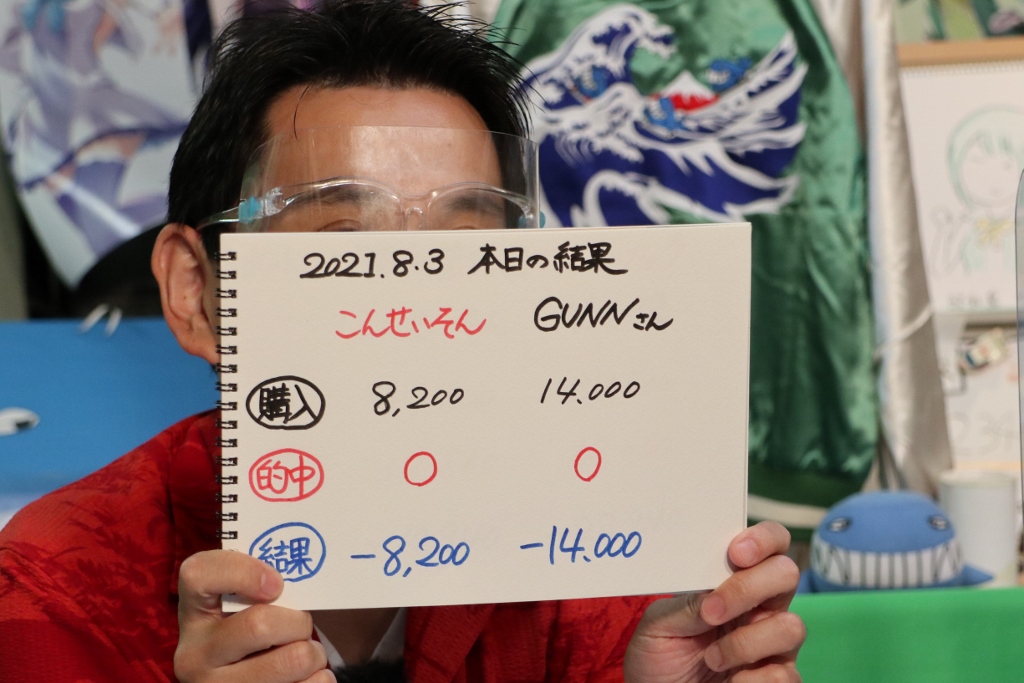 2021.8.3 本日の結果
こんせいそん GUNNさん
購入 8,200 14.000
的中 0 0
結果 -8,200 -14.000